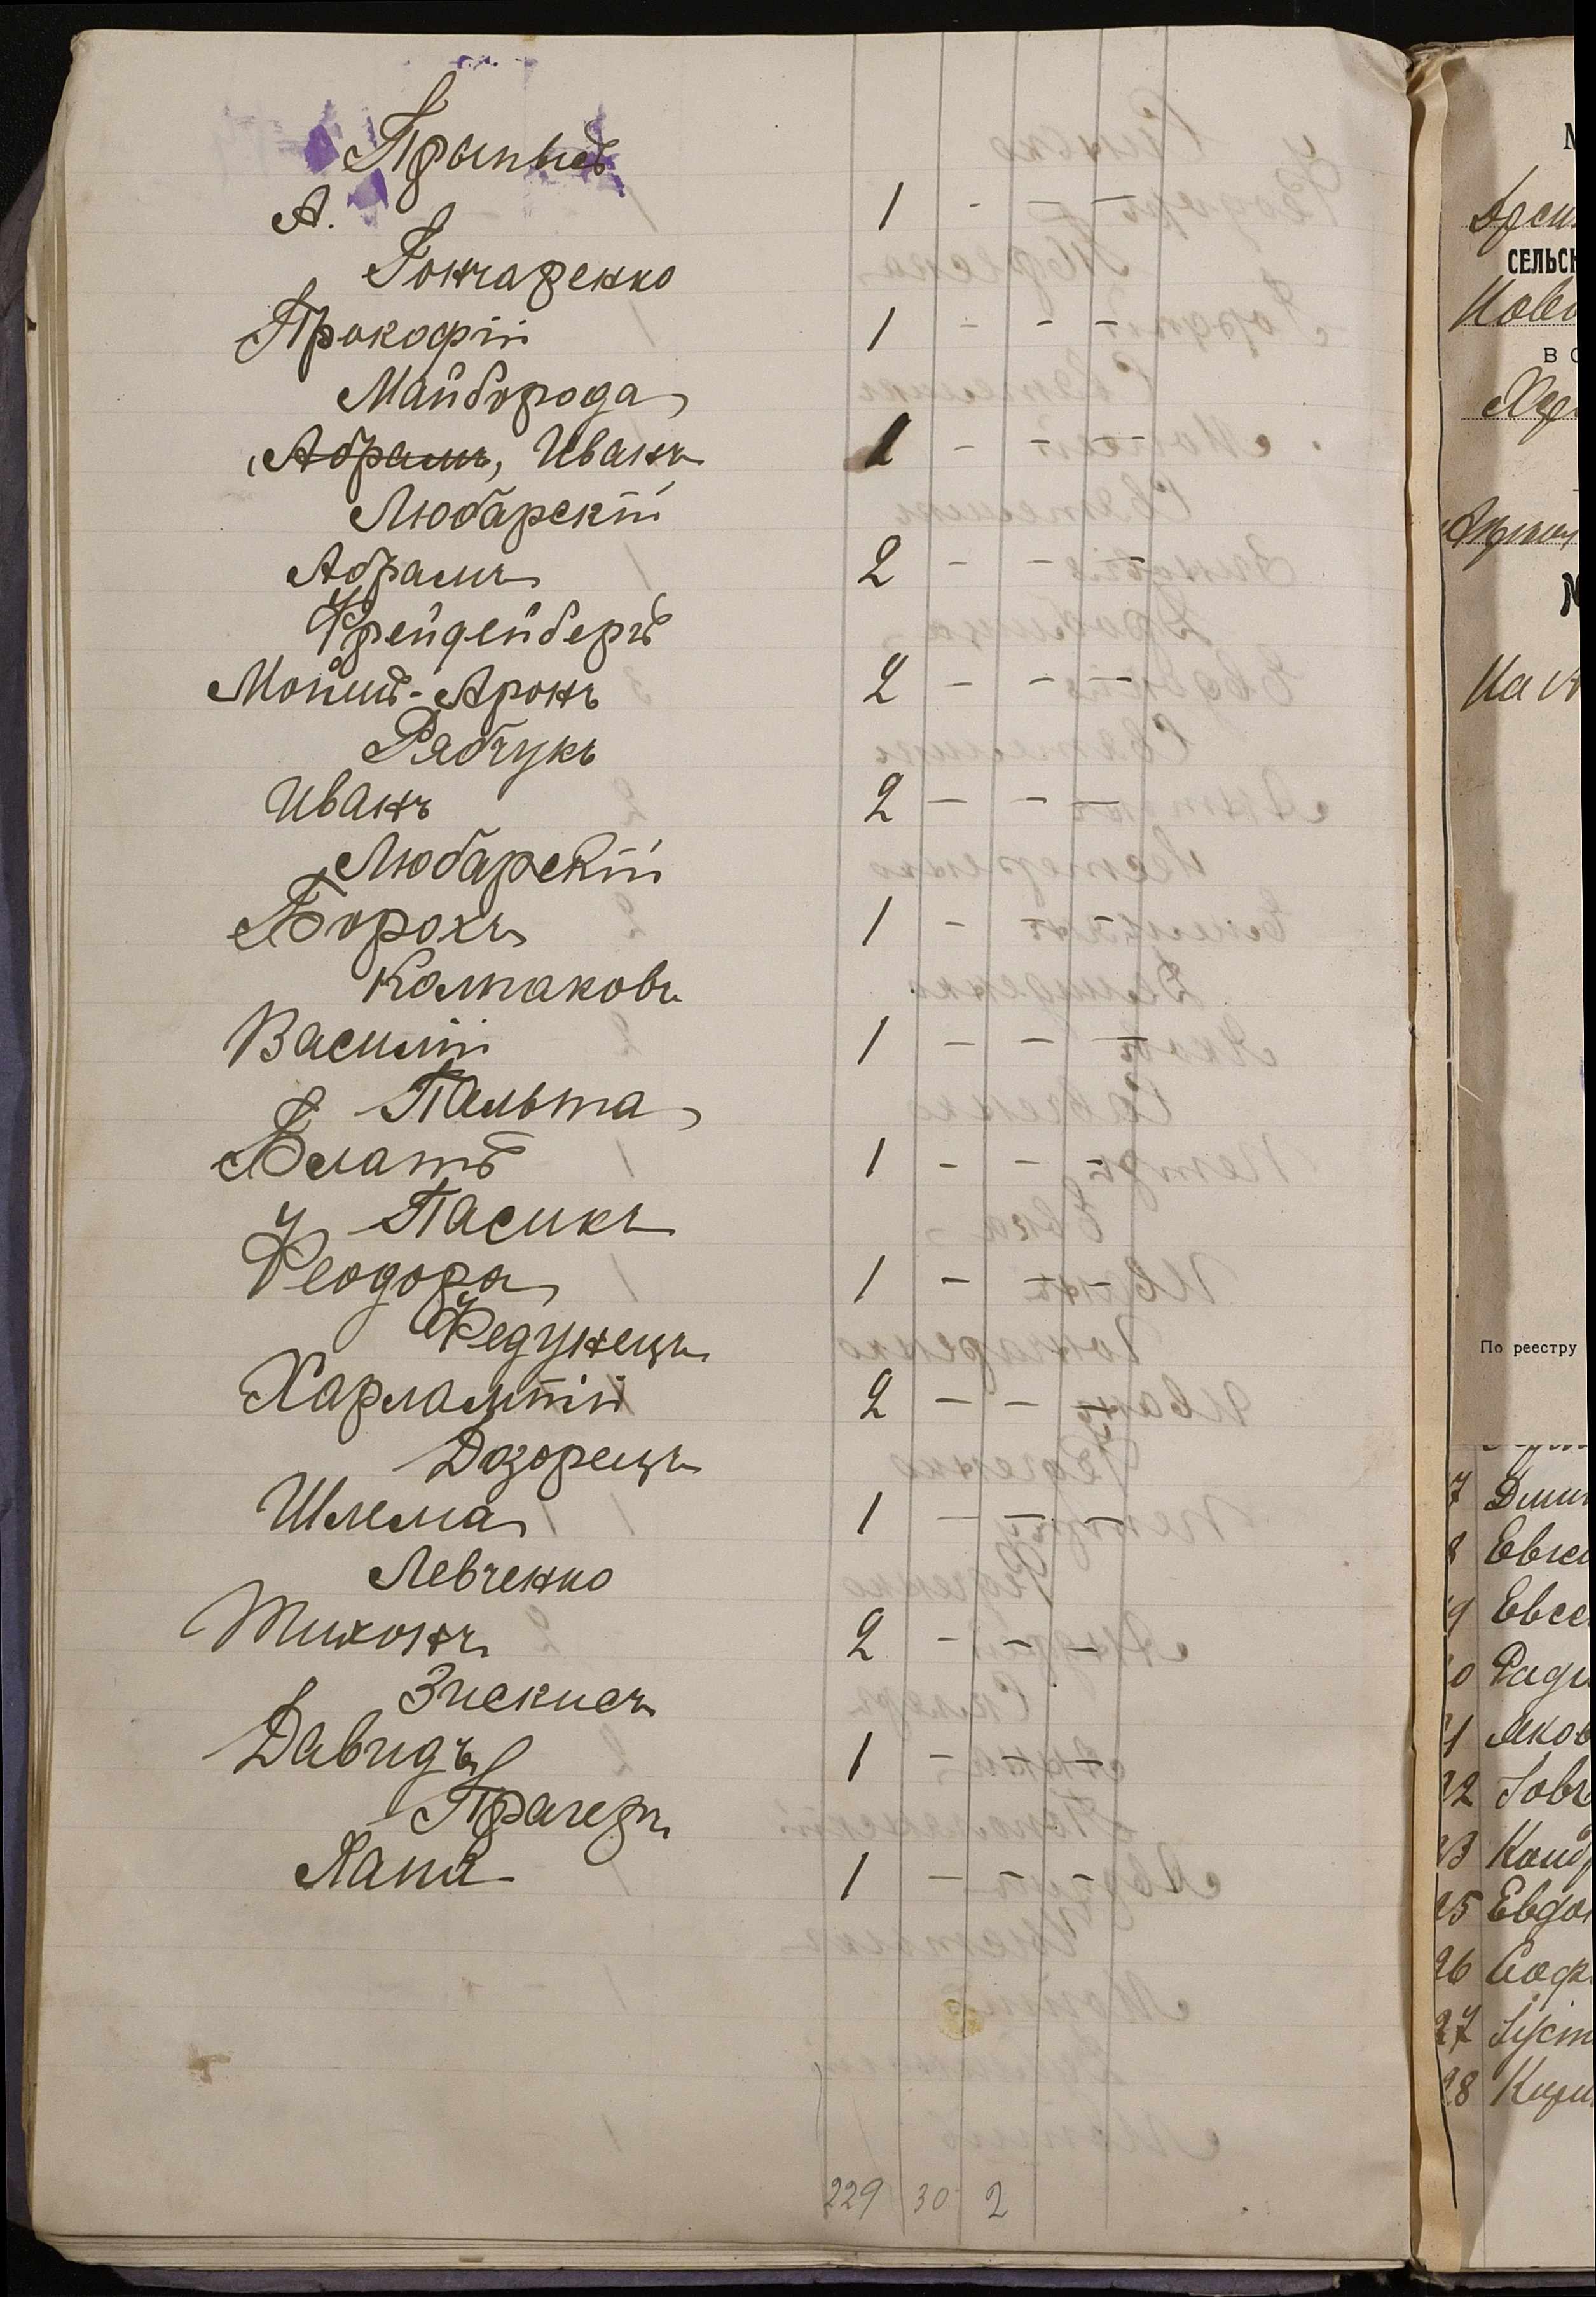 А. 1 - - -
Гончаренко
Прокофій 1 - - -
Майборода
Абрамъ, Иванъ 1 - - -
Любарскій
Абрамъ 2 - - -
Фрейденбергъ
Мойше-Аронъ 2 - - -
Рабчукъ
Иванъ 2 - - -
Любарскій
Борохъ 1 - - -
Колпаковъ
Василій 1 - - -
Пальта
Влатъ 1 - - -
Пасикъ
Феодора 1 - - -
Федунецъ
Харлампій 2 - - -
Дозорецъ
Шлема 1 - - -
Левченко
Тихонъ 2 - - -
Зискисъ
Давидъ 1 - - -
Прагеръ
1 - - -
229 30 2
СЕЛЬСК
По реестру
7 Дми
8 Евге
19 Евсе
20 Ради
21 Яков
22
23 Конд
25 Евдо
26 Соф
27 Іуст
28 Кири